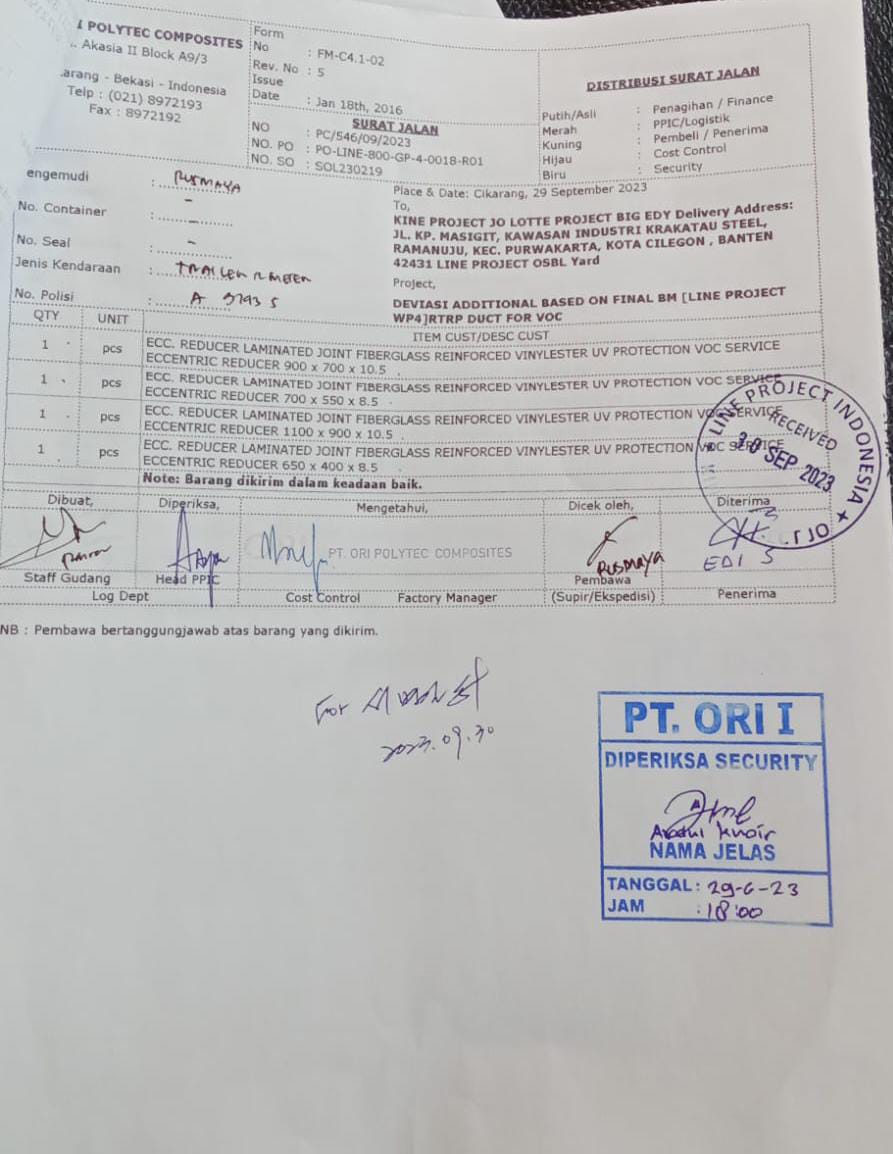 I POLYTEC COMPOSITES
. Akasia II Block A9/3
.arang - Bekasi - Indonesia
Telp : (021) 8972193
Fax : 8972192
Form
No : FM-C4.1-02
Rev. No : 5
Issue
Date : Jan 18th, 2016
SURAT JALAN
NO : PC/546/09/2023
NO. PO : PO-LINE-800-GP-4-0018-R01
NO. SO : SOL230219
DISTRIBUSI SURAT JALAN
Putih/Asli : Penagihan / Finance
Merah : PPIC/Logistik
Kuning : Pembeli / Penerima
Hijau : Cost Control
Biru : Security
engemudi : RUSMAYA
No. Container : -
No. Seal : -
Jenis Kendaraan : TRAILER
No. Polisi : A
Place & Date: Cikarang, 29 September 2023
To,
KINE PROJECT JO LOTTE PROJECT BIG EDY Delivery Address:
JL. KP. MASIGIT, KAWASAN INDUSTRI KRAKATAU STEEL,
RAMANUJU, KEC. PURWAKARTA, KOTA CILEGON , BANTEN
42431 LINE PROJECT OSBL Yard
Project,
DEVIASI ADDITIONAL BASED ON FINAL BM [LINE PROJECT
WP4]RTRP DUCT FOR VOC
QTY UNIT ITEM CUST/DESC CUST
1 pcs ECC. REDUCER LAMINATED JOINT FIBERGLASS REINFORCED VINYLESTER UV PROTECTION VOC SERVICE
ECCENTRIC REDUCER 900 x 700 x 10.5
1 pcs ECC. REDUCER LAMINATED JOINT FIBERGLASS REINFORCED VINYLESTER UV PROTECTION VOC SERVICE
ECCENTRIC REDUCER 700 x 550 x 8.5
1 pcs ECC. REDUCER LAMINATED JOINT FIBERGLASS REINFORCED VINYLESTER UV PROTECTION VOC SERVICE
ECCENTRIC REDUCER 1100 x 900 x 10.5
1 pcs ECC. REDUCER LAMINATED JOINT FIBERGLASS REINFORCED VINYLESTER UV PROTECTION VOC SERVICE
ECCENTRIC REDUCER 650 x 400 x 8.5
Note: Barang dikirim dalam keadaan baik.
LINE PROJECT INDONESIA ★ OFJ.
RECEIVED
30 SEP 2023
Dibuat, Diperiksa, Mengetahui, Dicek oleh, Diterima
PT. ORI POLYTEC COMPOSITES
RUSMAYA
EDI S
Staff Gudang Head PPIC Pembawa
Log Dept Cost Control Factory Manager (Supir/Ekspedisi) Penerima
NB : Pembawa bertanggungjawab atas barang yang dikirim.
For
2023.09.30
PT. ORI I
DIPERIKSA SECURITY
Abdul Khoir
NAMA JELAS
TANGGAL : 29-6-23
JAM : 18:00